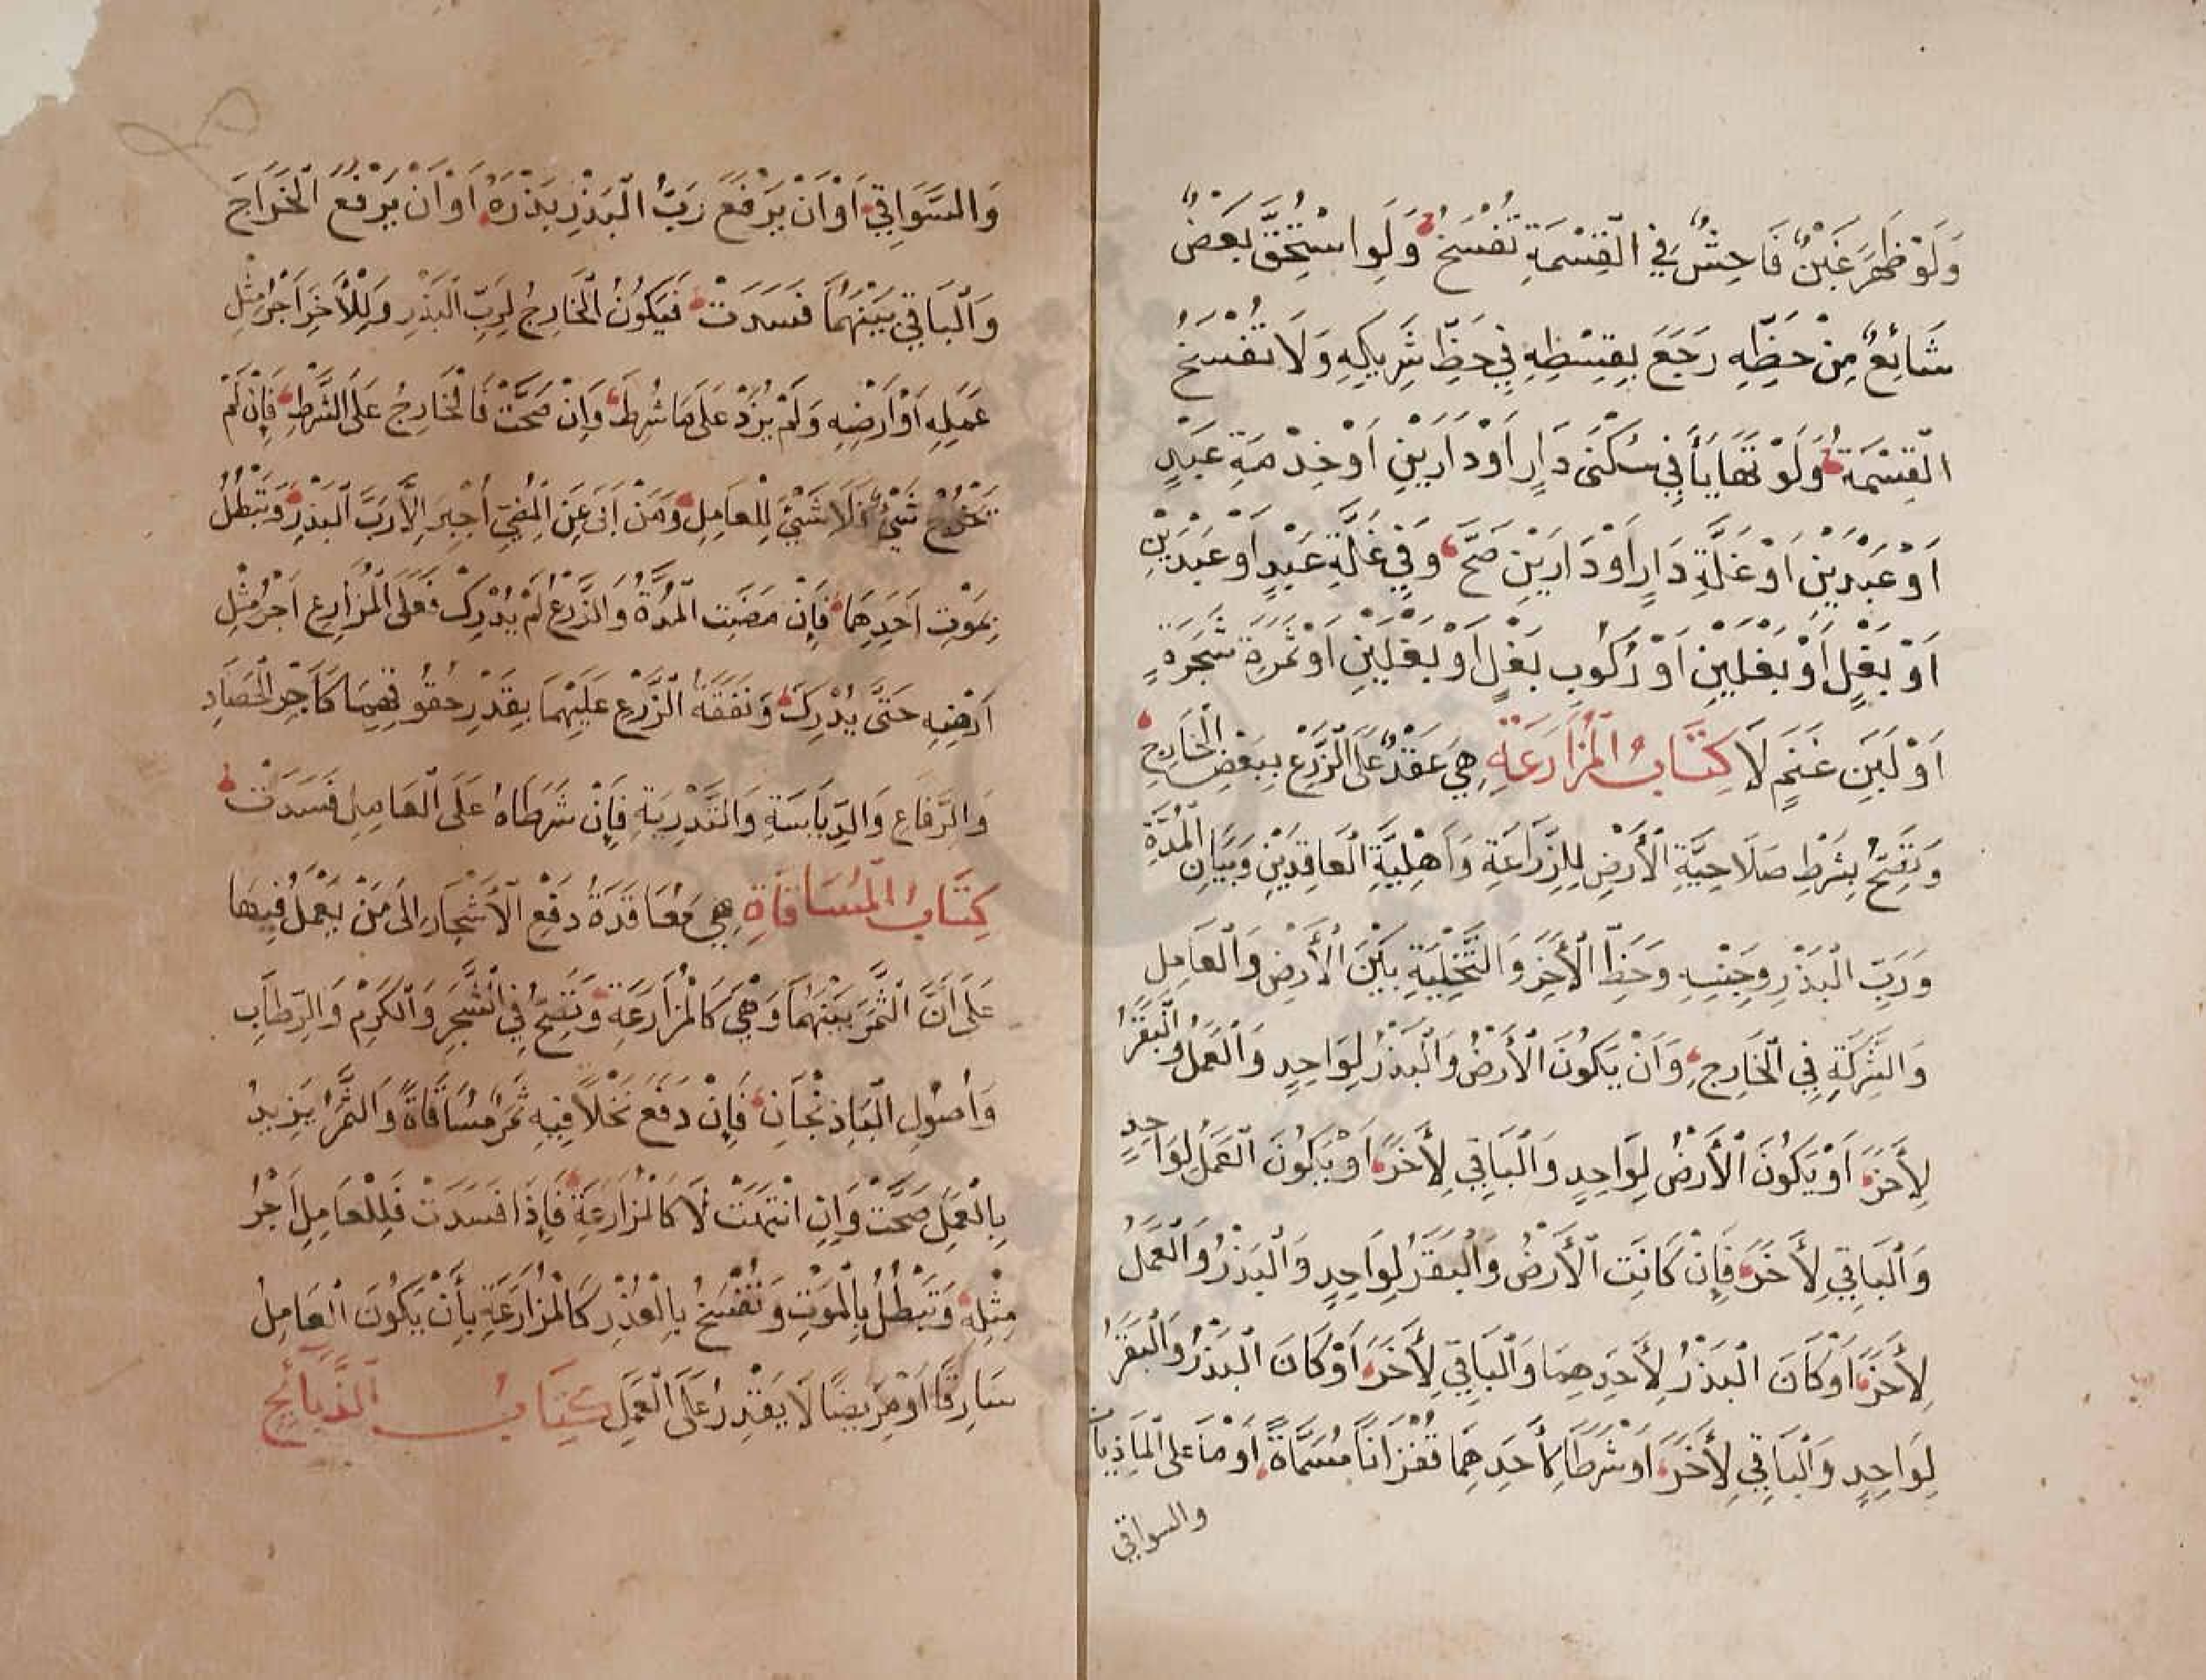 وَلَوْ ظَهَرَ غَبْنٌ فَاحِشٌ فِي الْقِسْمَةِ تُفْسَخُ وَلَوِ اسْتُحِقَّ بَعْضٌ
شَائِعٌ مِنْ حَظِّهِ رَجَعَ بِقِسْطِهِ فِي حَظِّ شَرِيكِهِ وَلَا تُفْسَخُ
الْقِسْمَةُ وَلَوْ تَهَايَأَ فِي سُكْنَى دَارٍ اَوْ دَارَيْنِ اَوْ خِدْمَةِ عَبْدٍ
اَوْ عَبْدَيْنِ اَوْ غَلَّةِ دَارٍ اَوْ دَارَيْنِ صَحَّ وَفِي غَلَّةِ عَبْدٍ اَوْ عَبْدَيْنِ
اَوْ بَغْلٍ اَوْ بَغْلَيْنِ اَوْ رُكُوبِ بَغْلٍ اَوْ بَغْلَيْنِ اَوْ ثَمَرَةِ شَجَرَةٍ
اَوْ لَبَنِ غَنَمٍ لَا كِتَابُ الْمُزَارَعَةِ هِيَ عَقْدٌ عَلَى الزَّرْعِ بِبَعْضِ الْخَارِجِ
وَتَصِحُّ بِشَرْطِ صَلَاحِيَّةِ الْأَرْضِ لِلزِّرَاعَةِ وَاَهْلِيَّةِ الْعَاقِدَيْنِ وَبَيَانِ الْمُدَّةِ
وَرَبِّ الْبَذْرِ وَجِنْسِهِ وَحَظِّ الْأَخَرِ وَالتَّخْلِيَةِ بَيْنَ الْأَرْضِ وَالْعَامِلِ
وَالشَّرِكَةِ فِي الْخَارِجِ وَاَنْ يَكُونَ الْأَرْضُ وَالْبَذْرُ لِوَاحِدٍ وَالْعَمَلُ وَالْبَقَرُ
لِأَخَرَ اَوْ يَكُونَ الْأَرْضُ لِوَاحِدٍ وَالْبَاقِي لِأَخَرَ اَوْ يَكُونَ الْعَمَلُ لِوَاحِدٍ
وَالْبَاقِي لِأَخَرَ فَإِنْ كَانَتِ الْأَرْضُ وَالْبَقَرُ لِوَاحِدٍ وَالْبَذْرُ وَالْعَمَلُ
لِأَخَرَ اَوْ كَانَ الْبَذْرُ لِأَحَدِهِمَا وَالْبَاقِي لِأَخَرَ اَوْ كَانَ الْبَذْرُ وَالْبَقَرُ
لِوَاحِدٍ وَالْبَاقِي لِأَخَرَ اَوْ شَرَطَا لِأَحَدِهِمَا قُفْزَانًا مُسَمَّاةً اَوْ مَا عَلَى الْمَاذِيَانَ
والسواقي
وَالسَّوَاقِي اَوْ اَنْ يَرْفَعَ رَبُّ الْبَذْرِ بَذْرَهُ اَوْ اَنْ يَرْفَعَ الْخَرَاجَ
وَالْبَاقِي بَيْنَهُمَا فَسَدَتْ فَيَكُونُ الْخَارِجُ لِرَبِّ الْبَذْرِ وَلِلْأَخَرِ اَجْرُ مِثْلِ
عَمَلِهِ اَوْ اَرْضِهِ وَلَمْ يُزَدْ عَلَى مَا شُرِطَ وَاِنْ صَحَّتْ فَالْخَارِجُ عَلَى الشَّرْطِ فَإِنْ لَمْ
تَخْرُجْ شَيْئٌ فَلَا شَيْئَ لِلْعَامِلِ وَمَنْ اَبَى عَنِ الْمُضِيِّ اُجْبِرَ اِلَّا رَبَّ الْبَذْرِ وَتَبْطُلُ
بِمَوْتِ اَحَدِهِمَا فَإِنْ مَضَتِ الْمُدَّةُ وَالزَّرْعُ لَمْ يُدْرِكْ فَعَلَى الْمُزَارِعِ اَجْرُ مِثْلِ
اَرْضِهِ حَتَّى يُدْرِكَ وَنَفَقَةُ الزَّرْعِ عَلَيْهِمَا بِقَدْرِ حُقُوقِهِمَا كَاَجْرِ الْحَصَادِ
وَالرَّفَاعِ وَالدِّيَاسَةِ وَالتَّذْرِيَةِ فَإِنْ شَرَطَاهُ عَلَى الْعَامِلِ فَسَدَتْ
كِتَابُ الْمُسَاقَاةِ هِيَ مُعَاقَدَةُ دَفْعِ الْأَشْجَارِ اِلَى مَنْ يَعْمَلُ فِيهَا
عَلَى اَنَّ الثَّمَرَ بَيْنَهُمَا وَهِيَ كَالْمُزَارَعَةِ وَتَصِحُّ فِي الشَّجَرِ وَالْكَرْمِ وَالرِّطَابِ
وَاُصُولِ الْبَاذِنْجَانِ فَإِنْ دَفَعَ نَخْلًا فِيهِ ثَمَرٌ مُسَاقَاةً وَالثَّمَرُ يَزِيدُ
بِالْعَمَلِ صَحَّتْ وَاِنِ انْتَهَتْ لَا كَالْمُزَارَعَةِ فَإِذَا فَسَدَتْ فَلِلْعَامِلِ اَجْرُ
مِثْلِهِ وَتَبْطُلُ بِالْمَوْتِ وَتُفْسَخُ بِالْعُذْرِ كَالْمُزَارَعَةِ بِأَنْ يَكُونَ الْعَامِلُ
سَارِقًا اَوْ مَرِيضًا لَا يَقْدِرُ عَلَى الْعَمَلِ كِتَابُ الذَّبَائِحِ